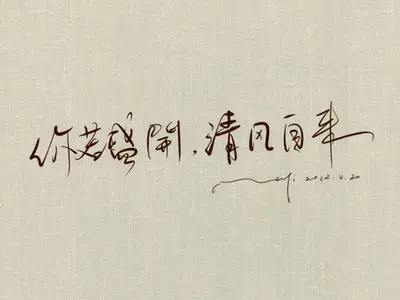 你若盛開，清风自来
2012.4.20